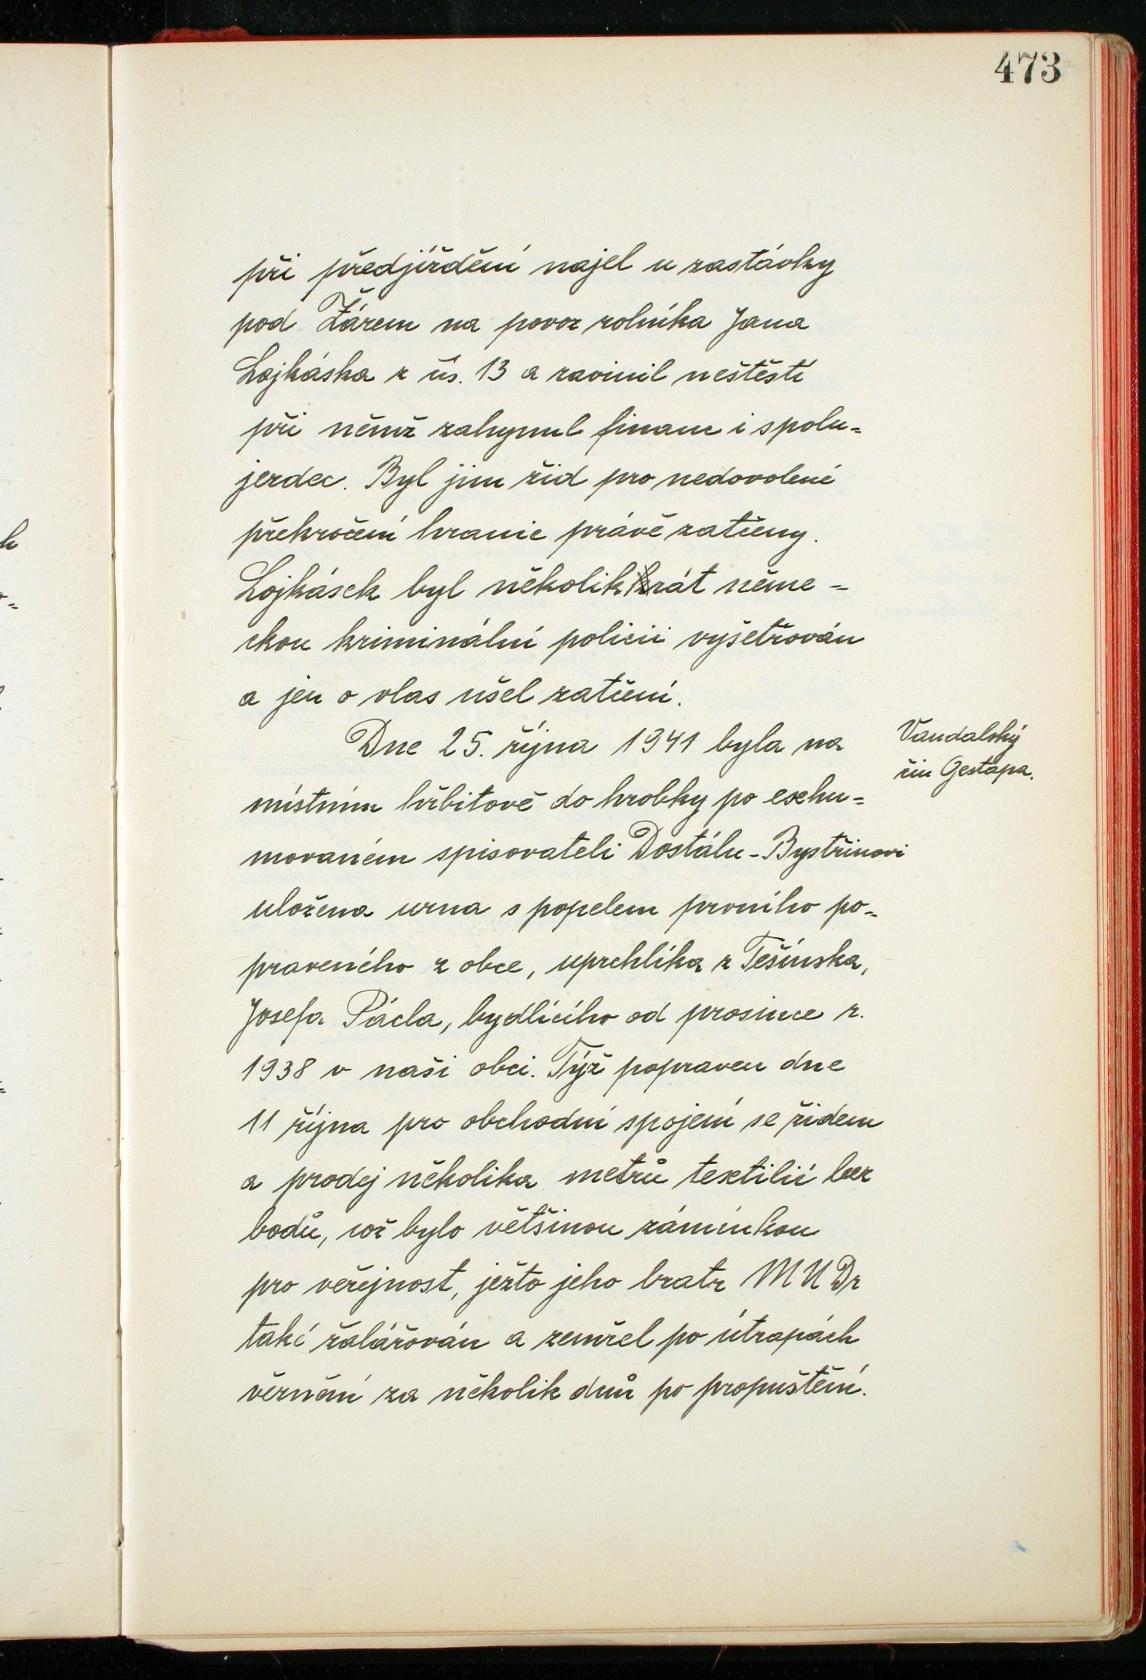 473
při předjíždění najel u zastávky
pod Žárem na povoz rolníka Jana
Lojkáska z čís. 13 a zavinil neštěstí
při němž zahynul financ i spolu=
jezdec. Byl jím žid pro nedovolené
překročení hranic právě zatčený.
Lojkásek byl několikkrát něme-
ckou kriminální policií vyšetřován
a jen o vlas ušel zatčení.
Dne 25. října 1941 byla na
místním hřbitově do hrobky po exhu=
movaném spisovateli Dostálu-Bystřinovi
uložena urna s popelem prvního po-
praveného z obce, uprchlíka z Těšínska,
Josefa Pácla, bydlícího od prosince r.
1938 v naší obci. Týž popraven dne
11 října pro obchodní spojení se židem
a prodej několika metrů textilií bez
bodů, což bylo většinou záminkou
pro veřejnost, ježto jeho bratr MUDr
také žalářován a zemřel po útrapách
věznění za několik dnů po propuštění.
Vandalský
čin Gestapa.